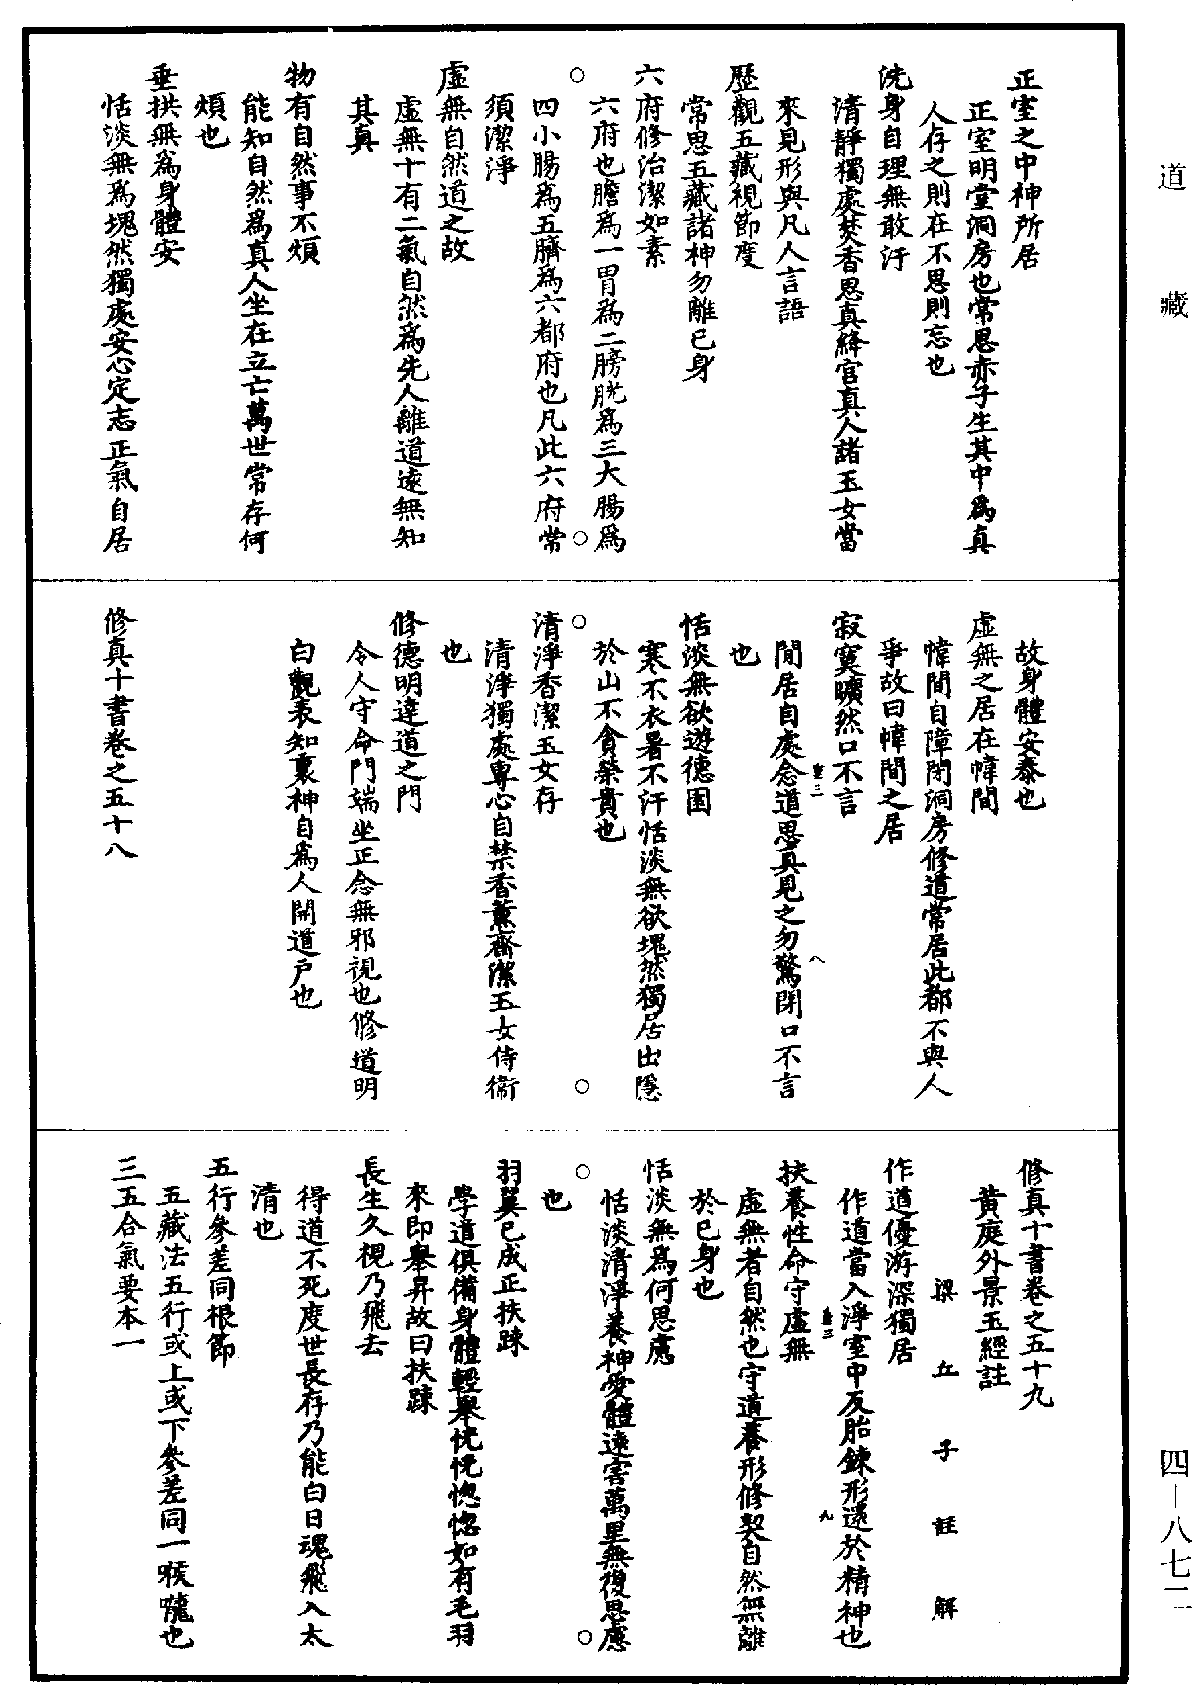 道藏
正室之中神所居
正室明堂洞房也常思赤子生其中爲真
人存之則在不思則忘也
洗身自理無敢汙
清靜獨處焚香思真絳宮真人諸玉女當
來見形與凡人言語
歷觀五藏視節度
常思五藏諸神勿離己身
六府修治潔如素
六府也膽爲一胃爲二膀胱爲三大腸爲
四小腸爲五臍爲六都府也凡此六府常
須潔淨
虛無自然道之故
虛無十有二氣自然爲先人離道遠無知
其真
物有自然事不煩
能知自然爲真人坐在立亡萬世常存何
煩也
垂拱無爲身體安
恬淡無爲塊然獨處安心定志正氣自居
故身體安泰也
虛無之居在幃間
幃間自障閉洞房修道常居此都不與人
爭故曰幃間之居
寂寞曠然口不言
閒居自處念道思真見之勿驚閉口不言
也
恬淡無欲遊德園
寒不衣暑不汗恬淡無欲塊然獨居出隱
於山不貪榮貴也
清淨香潔玉女存
清淨獨處專心自禁香薰齋潔玉女侍衛
也
修德明達道之門
令人守命門端坐正念無邪視也修道明
白觀表知裏神自爲人開道戶也
修真十書卷之五十八
修真十書卷之五十九
黃庭外景玉經註
梁丘子註解
作道優游深獨居
作道當入淨室中反胎鍊形還於精神也
扶養性命守虛無
虛無者自然也守道養形修契自然無離
於己身也
恬淡無爲何思慮
恬淡清淨養神愛體遠害萬里無復思慮
也
羽翼已成正扶踈
學道俱備身體輕舉恍恍惚惚如有毛羽
來即舉昇故曰扶踈
長生久視乃飛去
得道不死度世長存乃能白日魂飛入太
清也
五行參差同根節
五藏法五行或上或下參差同一喉嚨也
三五合氣要本一
四—八七二